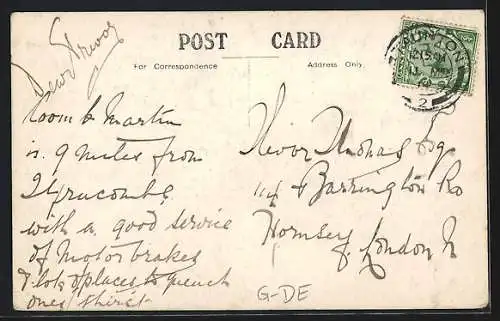 POST CARD
For Correspondence
Address Only.
Dear Trevor
Coomb Martin
is 9 miles from
Ilfracombe
with a good service
of Motor brakes
& lots of places to quench
ones thirst
Trevor Thomas Esq
114 Barrington Rd
Hornsey
London N
TAUNTON
12.15 PM
2
G-DE